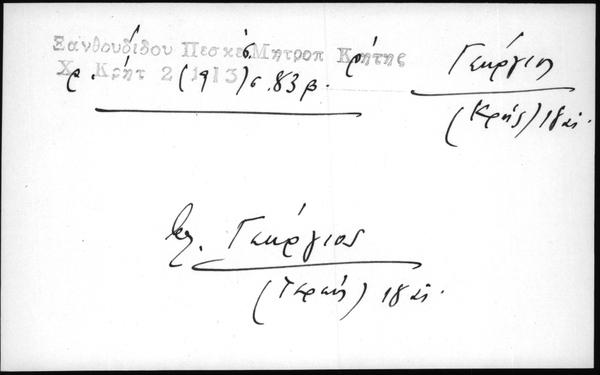 Ξανθουδίδου Πεσκέσ. Μητροπ Κρήτης
Χρ. Κρήτ 2 (1913) σ. 83 β.
Γεώργιος
(Κρής) 18 αἰ.
βλ. Γεώργιος
18 αἰ.